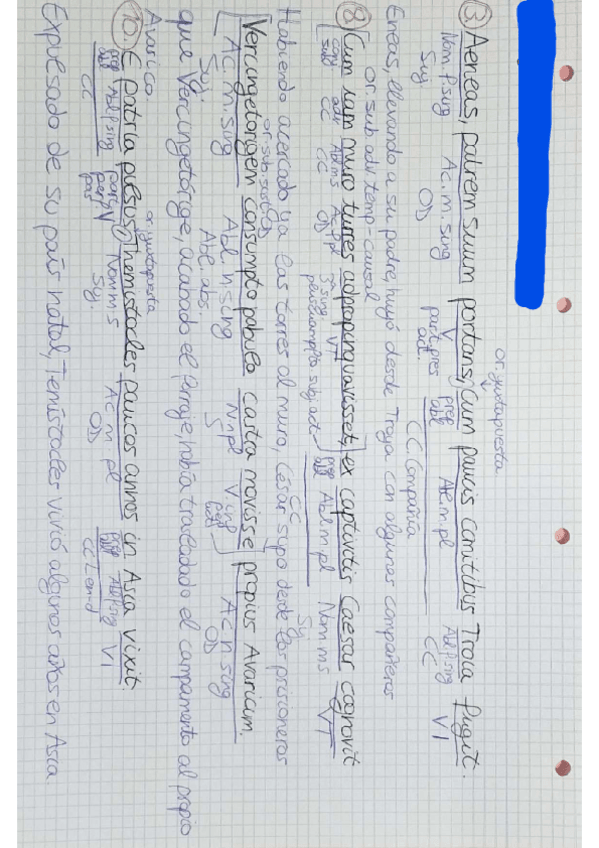 or. yuxtapuesta
③ Aeneas, patrem suum portans, cum paucis comitibus Troia fugit.
Nom f sing Ac. m. sing V prep abl Ab. m. pl Abl f sing V I
Suj OD part. pres act. CC. Compañía CC
Eneas, llevando a su padre, huyó desde Troya con algunos compañeros
or. sub adv temp-causal
⑧ Cum iam muro turres adpropinquavisset, ex captivitis Caesar cognovit
conj sub adv Abl m s Ac f pl 3ª sing V I prep abl Abl m pl Nom m s V T
CC CC OD pluscuampfto subj act CC Suj
Habiendo acercado ya las torres al muro, César supo desde los prisioneros
or. sub. sust OD
Vercingetorigem consumpto pabulo castra movisse propius Avaricum.
Ac. m. sing Abl n sing N n pl V inf Ac n sing
Suj. Abl. abs. S OD
que Vercingetórige, acabado el forraje, había trasladado el campamento al propio
Avarico.
or. yuxtapuesta
⑩ E patria pulsus, Themistocles paucos annos in Asia vixit.
prep abl Abl f sing V Nom m s Ac m pl prep abl Abl f sing V I
CC part perf pas Suj. OD CC Len-d
Expulsado de su país natal, Temístocles vivió algunos años en Asia.